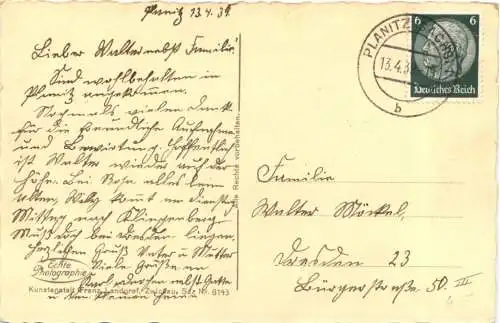 Planitz 13.4.39.
Lieber Walter nebst Familie!
Sind wohlbehalten in
Planitz angekommen.
Nochmals vielen Dank
für die freundliche Aufnahme
und Bewirtung. Hoffentlich
ist Walter wieder auf der
Höhe. Bei Rosa alles beim
alten, Willy kommt am Dienstag
Mittag nach Klingenberg
Muß doch bei Dresden liegen.
Herzlichen Gruß Vater u Mutter
Viele Grüße an
nebst
u den kleinen Heini
Echte
Photographie
Kunstanstalt Franz Landgraf, Zwickau, Sa. Nr. 8143
Rechte vorbehalten.
PLANITZ
13.4.3
b
6 6
Deutsches Reich
Familie
Walter Möckel,
Dresden 23
Bürgerstraße 50. III